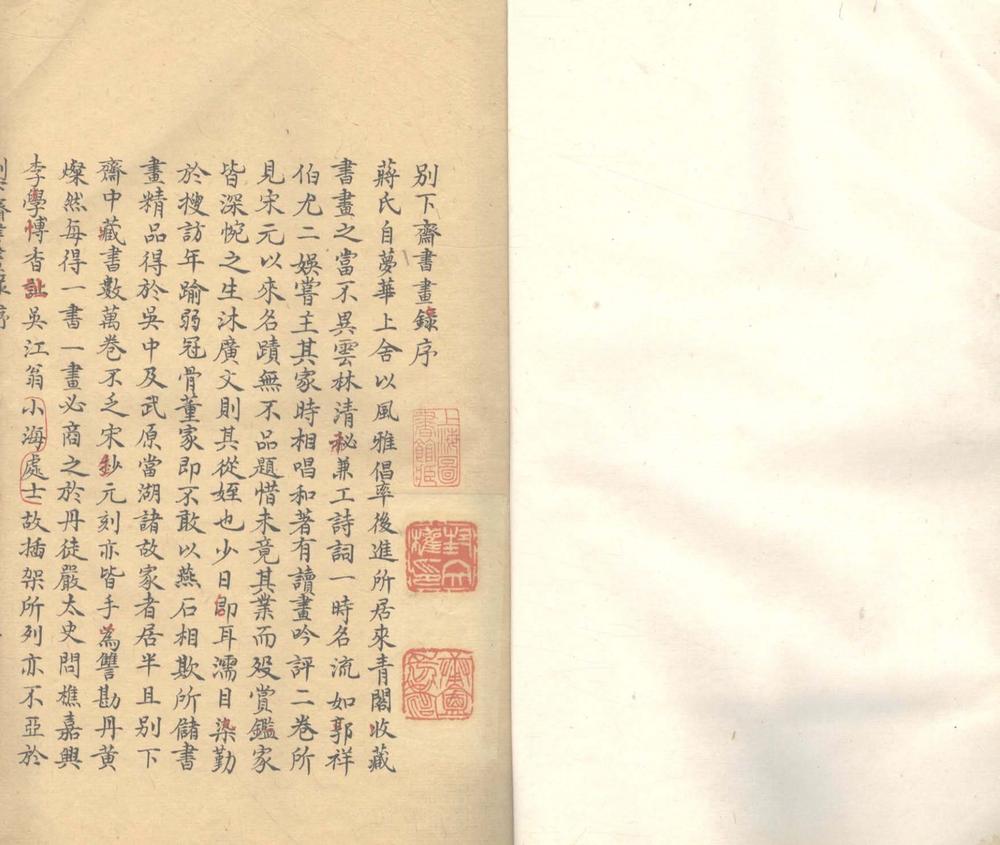 別下齋書畫錄序
蔣氏自夢華上舍以風雅倡率後進所居來青閣收藏
書畫之富不異雲林清秘兼工詩詞一時名流如郭祥
伯尤二娛嘗主其家時相唱和著有讀畫吟評二卷所
見宋元以來名蹟無不品題惜未竟其業而歿賞鑑家
皆深惋之生沐廣文則其從姪也少日即耳濡目染勤
於搜訪年踰弱冠骨董家即不敢以燕石相欺所儲書
畫精品得於吳中及武原當湖諸故家者居半且別下
齋中藏書數萬卷不乏宋鈔元刻亦皆手為讐勘丹黃
燦然每得一書一畫必商之於丹徒嚴太史問樵嘉興
李學博杳訨吳江翁小海處士故插架所列亦不亞於
上海圖書館藏